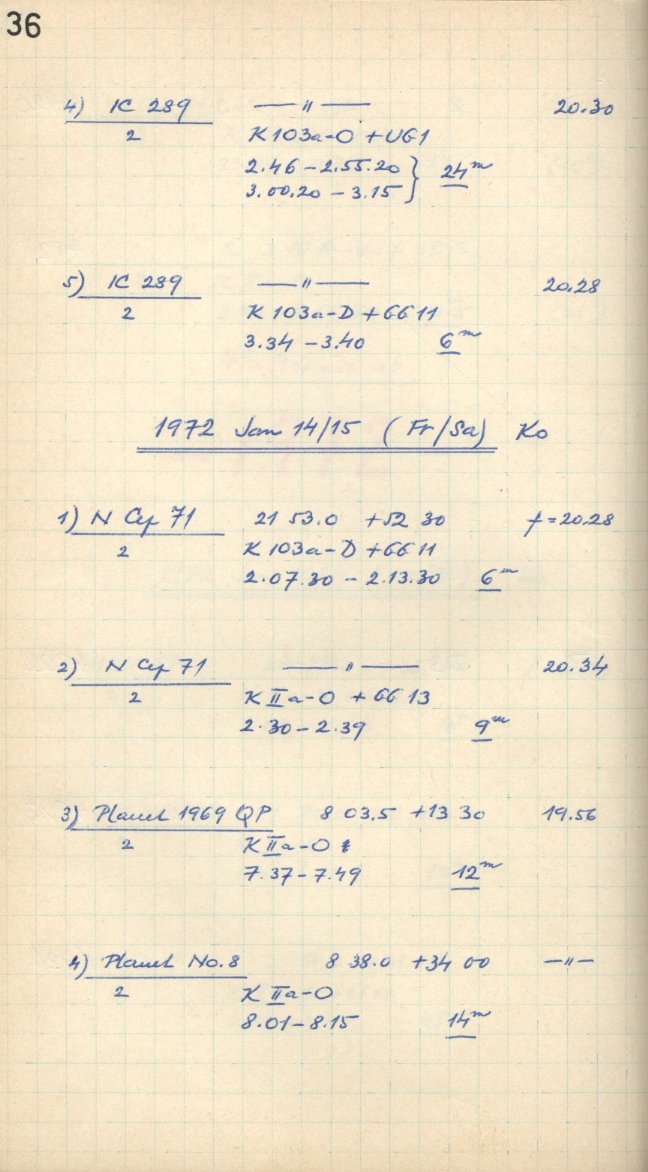 36
4) IC 289 — " — 20.30
2 K 103a-O + UG1
2.46 – 2.55.20 } 24m
3.00.20 – 3.15
5) IC 289 — " — 20.28
2 K 103a-D + GG 11
3.34 – 3.40 6m
1972 Jan 14/15 (Fr/Sa) Ko
1) N Cep 71 21 53.0 +52 30 f = 20.28
2 K 103a-D + GG 11
2.07.30 – 2.13.30 6m
2) N Cep 71 — " — 20.34
2 K IIa-O + GG 13
2.30 – 2.39 9m
3) Planet 1969 QP 8 03.5 +13 30 19.56
2 K IIa-O
7.37 – 7.49 12m
4) Planet No. 8 8 38.0 +34 00 — " —
2 K IIa-O
8.01 – 8.15 14m